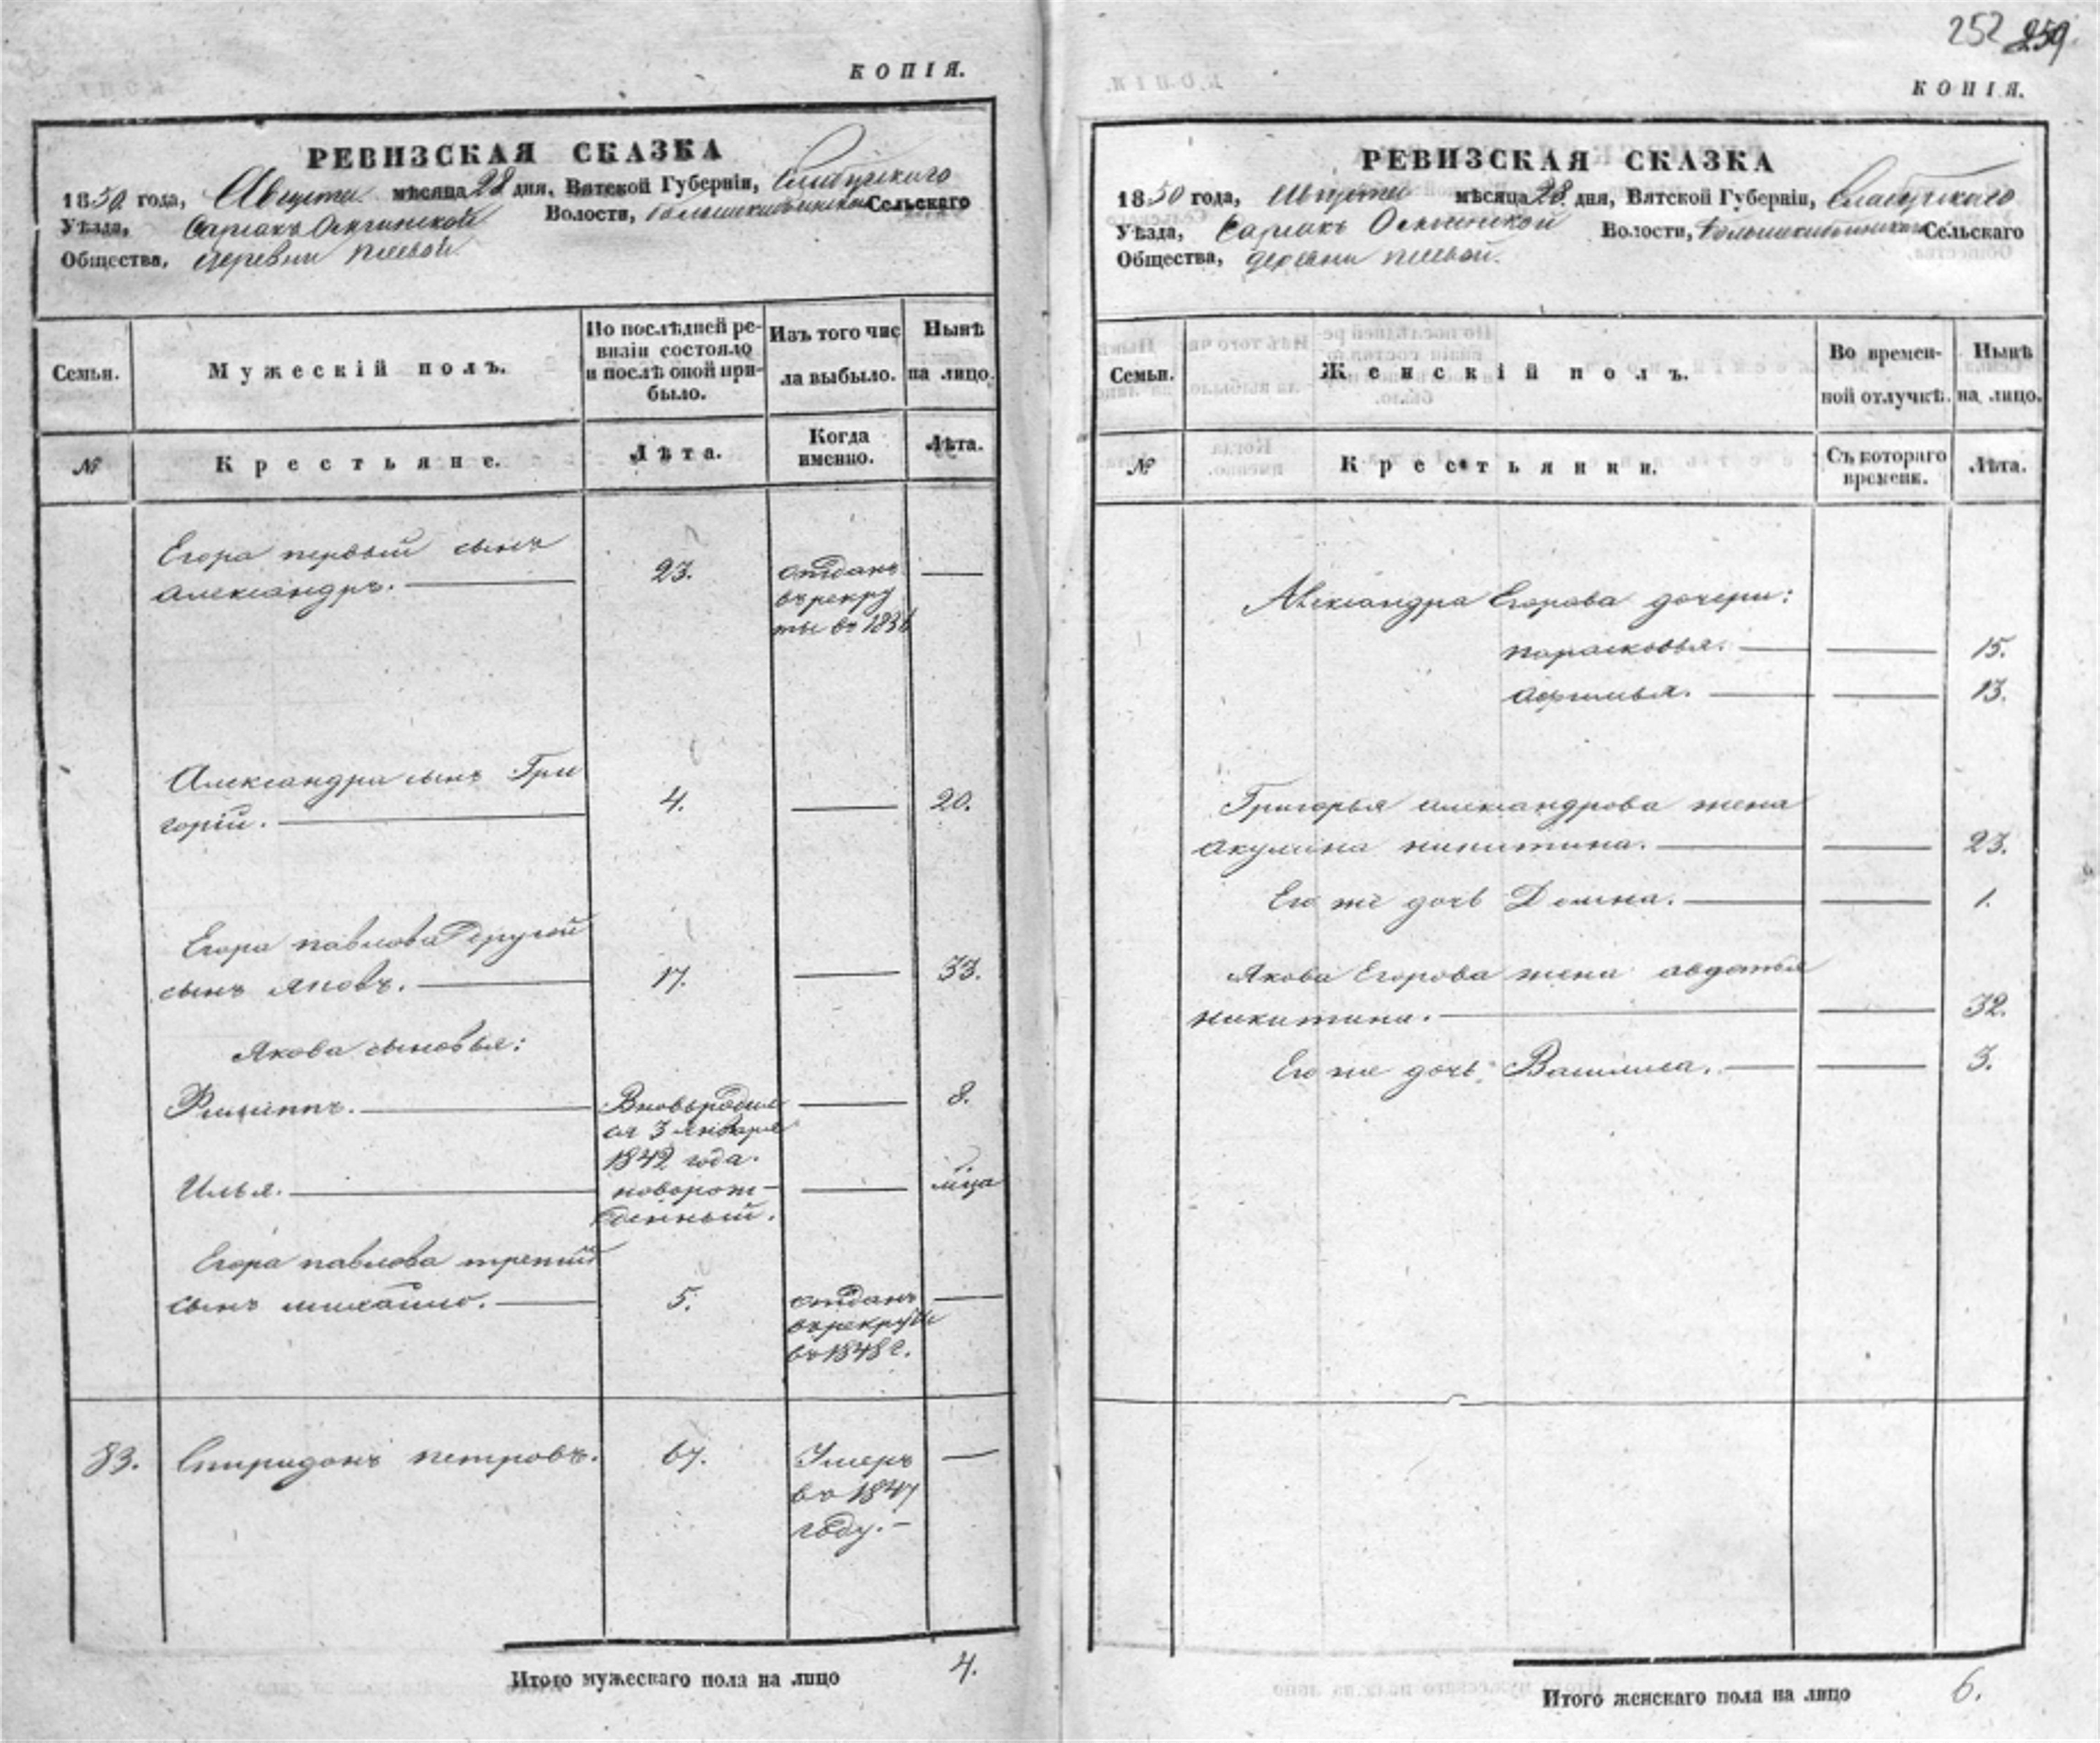 252 259
КОПІЯ.
РЕВИЗСКАЯ СКАЗКА
1850 года, Августа мѣсяца 28 дня, Вятской Губерніи, Елабужского
Уѣзда, Сарсакъ Омгинской Волости, Сельскаго
Общества, деревни
Семьи.
Мужескій полъ.
По послѣдней ре-
визіи состояло
и послѣ оной при-
было.
Изъ того чис
ла выбыло.
Нынѣ
на лицо.
№
Крестьяне.
Лѣта.
Когда
именно.
Лѣта.
Егора первый сынъ
Александръ. 23. отданъ
въ рекру
ты въ 1836
Александра сынъ Гри
горій. 4. 20.
Егора павлова другой
сынъ яковъ. 17. 33.
Якова сыновья:
Филиппъ. Вновьродил 8.
ся 3 января
1842 года.
Илья. новорож- м͞ца
денный.
Егора павлова третий
сынъ михайло. 5. отданъ
въ рекруты
въ 1848 г.
83. Спиридонъ петровъ. 67. Умеръ
въ 1847
году.
Итого мужескаго пола на лицо 4.
КОПІЯ.
РЕВИЗСКАЯ СКАЗКА
1850 года, Августа мѣсяца 28. дня, Вятской Губерніи, Елабужского
Уѣзда, Сарсакъ Омгинской Волости, Сельскаго
Общества, деревни
Семьи.
Женскій полъ.
Во времен-
ной отлучкѣ.
Нынѣ
на лицо.
№
Крестьянки.
Съ котораго
времени.
Лѣта.
Александра Егорова дочери:
парасковья. 15.
афимья. 13.
Григорья александрова жена
акулина никитина. 23.
Его же дочь Домна. 1.
Якова Егорова жена авдотья
никитина. 32.
Его же дочь Василиса. 3.
Итого женскаго пола на лицо 6.